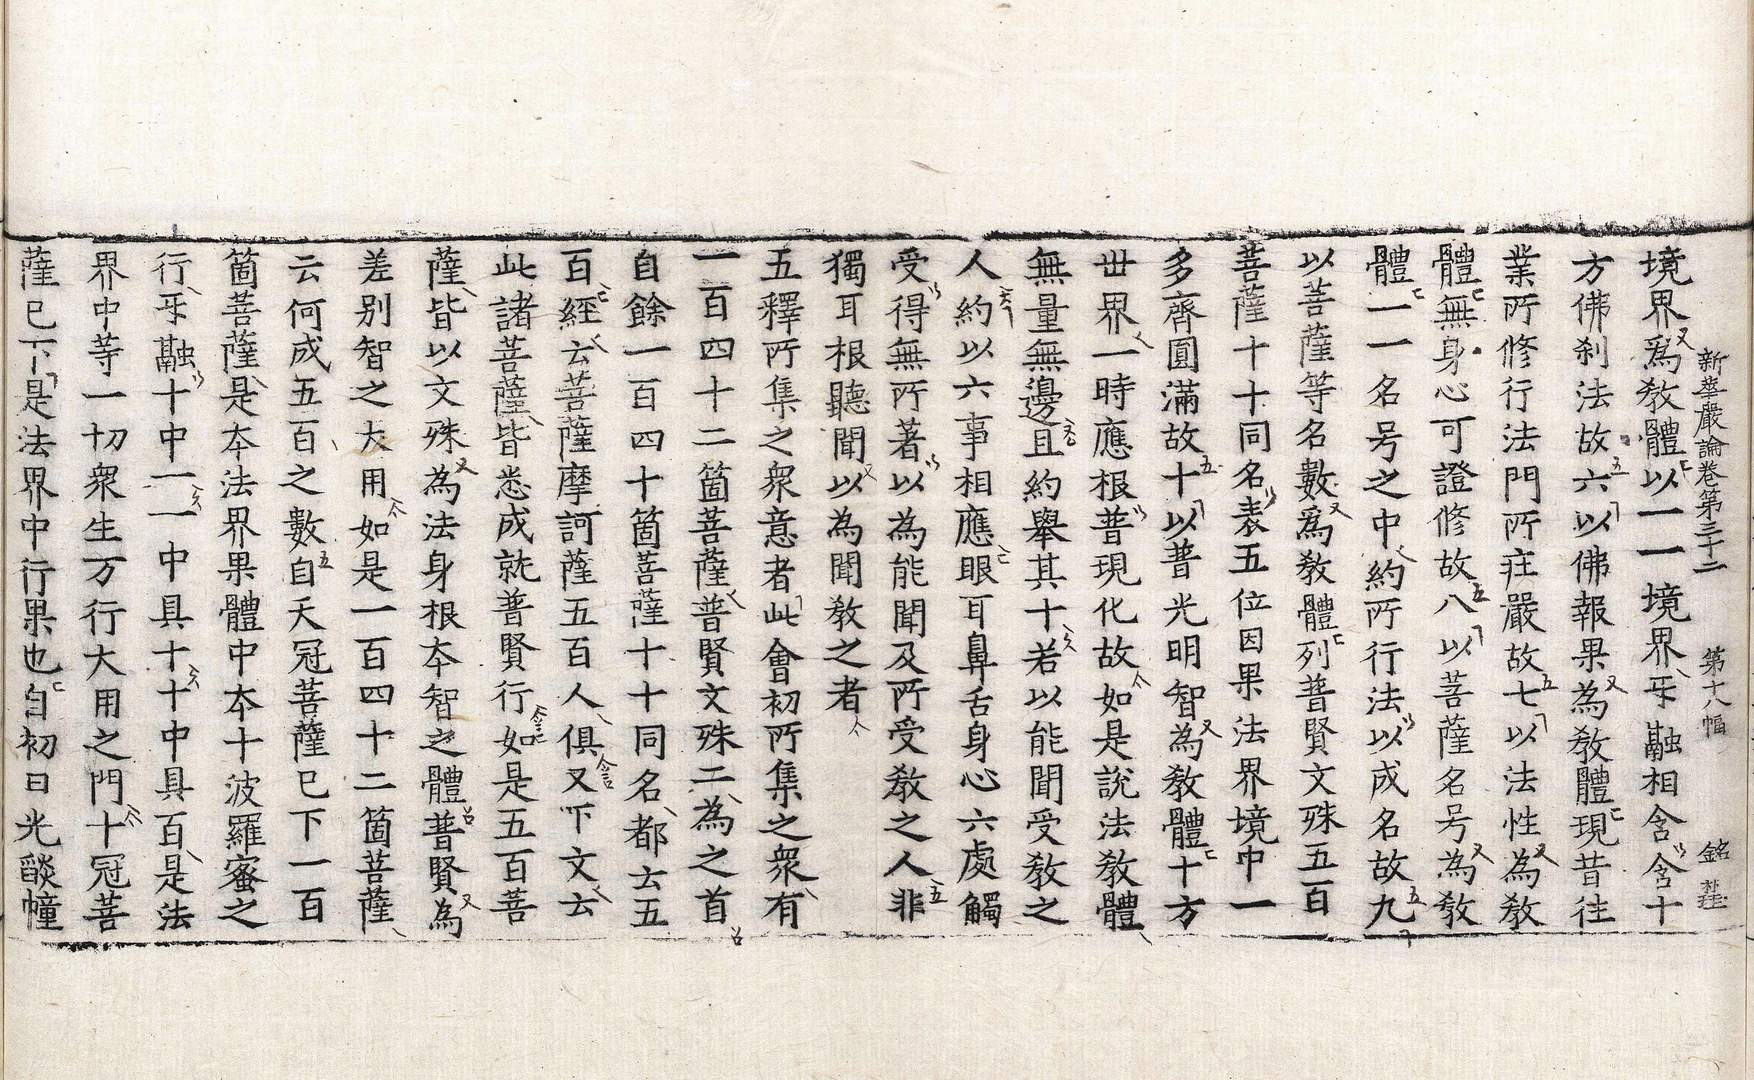 新華嚴論卷第三十二　第十八幅　銘
境界爲教體以一一境界㸦融相含含十
方佛刹法故六以佛報果為教體現昔往
業所修行法門所庄嚴故七以法性為教
體無身心可證修故八以菩薩名号為教
體一一名号之中約所行法以成名故九
以菩薩等名數爲教體列普賢文殊五百
菩薩十十同名表五位因果法界境中一
多齊圓滿故十以普光明智為教體十方
世界一時應根普現化故如是說法教體
無量無邊且約舉其十若以能聞受教之
人約以六事相應眼耳鼻舌身心六處觸
受得無所著以為能聞及所受教之人非
獨耳根聽聞以為聞教之者
五釋所集之衆意者此會初所集之衆有
一百四十二箇菩薩普賢文殊二為之首
自餘一百四十箇菩薩十十同名都云五
百經云菩薩摩訶薩五百人俱又下文云
此諸菩薩皆悉成就普賢行如是五百菩
薩皆以文殊為法身根夲智之體普賢為
差别智之大用如是一百四十二箇菩薩
云何成五百之數自天冠菩薩巳下一百
箇菩薩是夲法界果體中夲十波羅蜜之
行㸦融十中一一中具十十中具百是法
界中等一切衆生万行大用之門十冠菩
薩巳下是法界中行果也自初日光𦦨幢